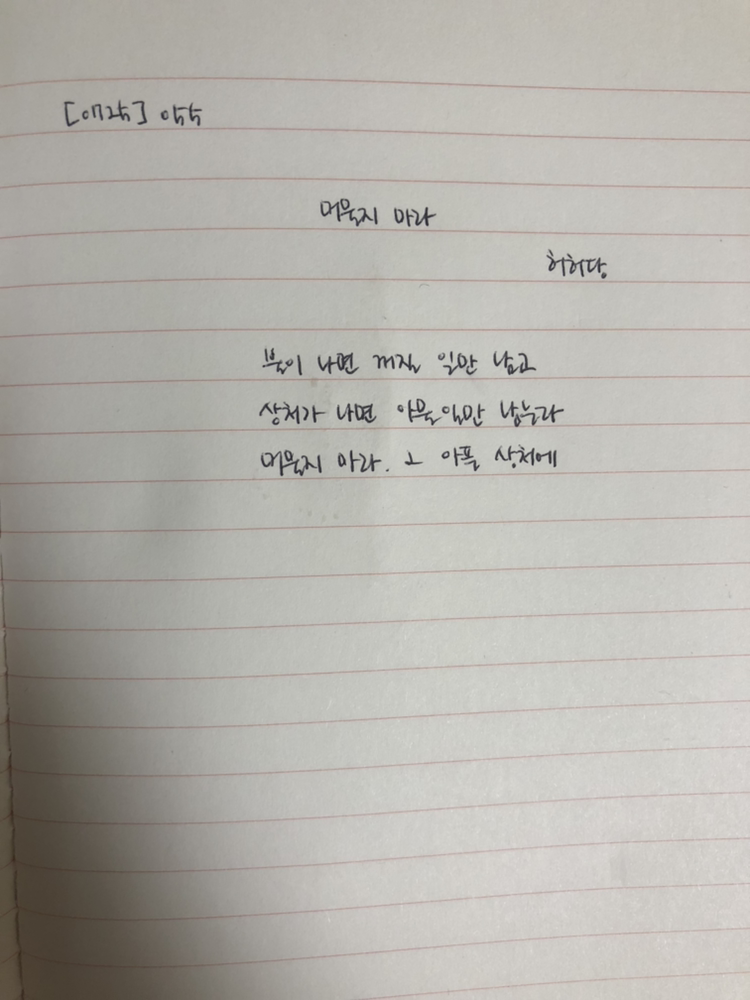 머물지 마라
허허당
불이 나면 꺼질 일만 남고
상처가 나면 아물 일만 남는다
머물지 마라. 그 아픈 상처에